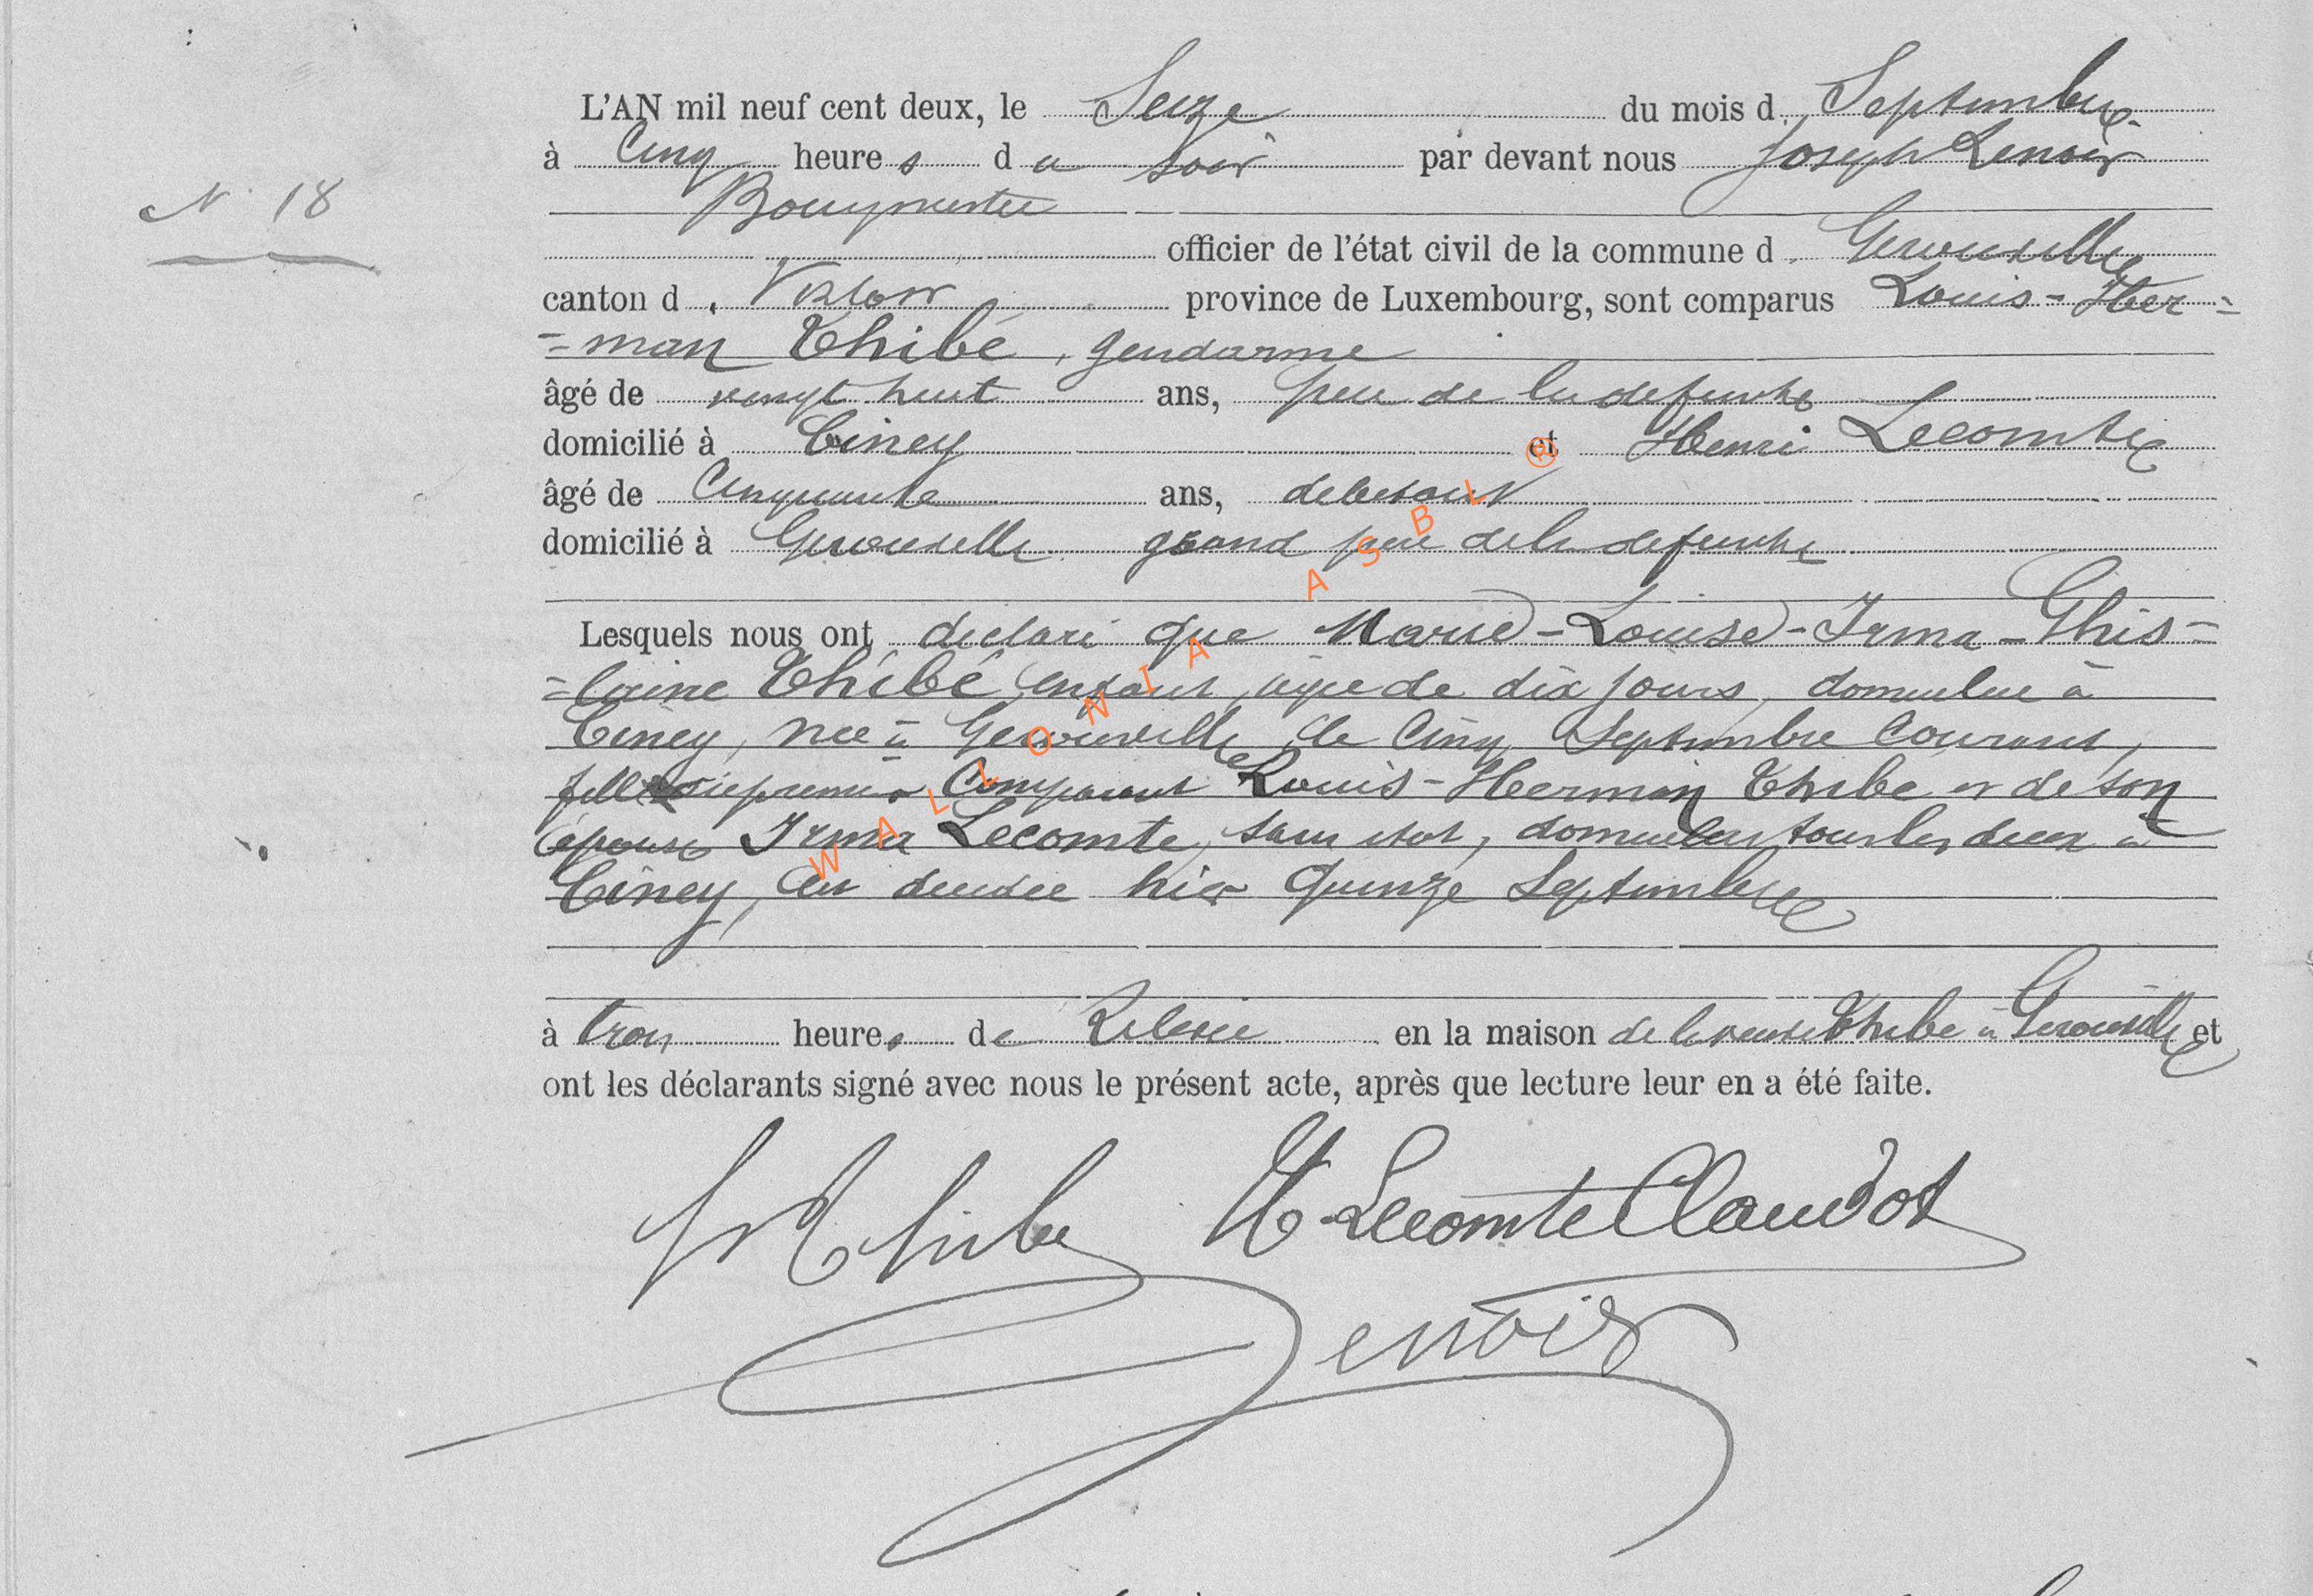 L'AN mil neuf cent deux, le Seize du mois d Septembre
à Cinq heures du soir par devant nous Joseph Lenoir
N° 18
Bourgmestre
officier de l'état civil de la commune d Gerouville
canton d Virton province de Luxembourg, sont comparus Louis-Her-
-man Thibé, gendarme
âgé de vingt huit ans, père de la defunte
domicilié à Ciney et Henri Lecomte
âgé de Cinquante ans,
domicilié à Gerouville grand père de la defunte
Lesquels nous ont déclaré que Marie-Louise-Irma-Ghis-
-laine Thibé, enfant, agée de dix jours, domiciliée à
Ciney, née à Gerouville, le Cinq Septembre Courant,
fille du premier Comparant Louis-Herman Thibé et de son
épouse Irma Lecomte, sans état, domiciliés tous les deux à
Ciney, est décédée hier Quinze Septembre
à trois heures de Relevée en la maison de la veuve Thibé à Gerouville et
ont les déclarants signé avec nous le présent acte, après que lecture leur en a été faite.
Thibé H. Lecomte Claudot
Lenoir
WALLONIA ASBL ®